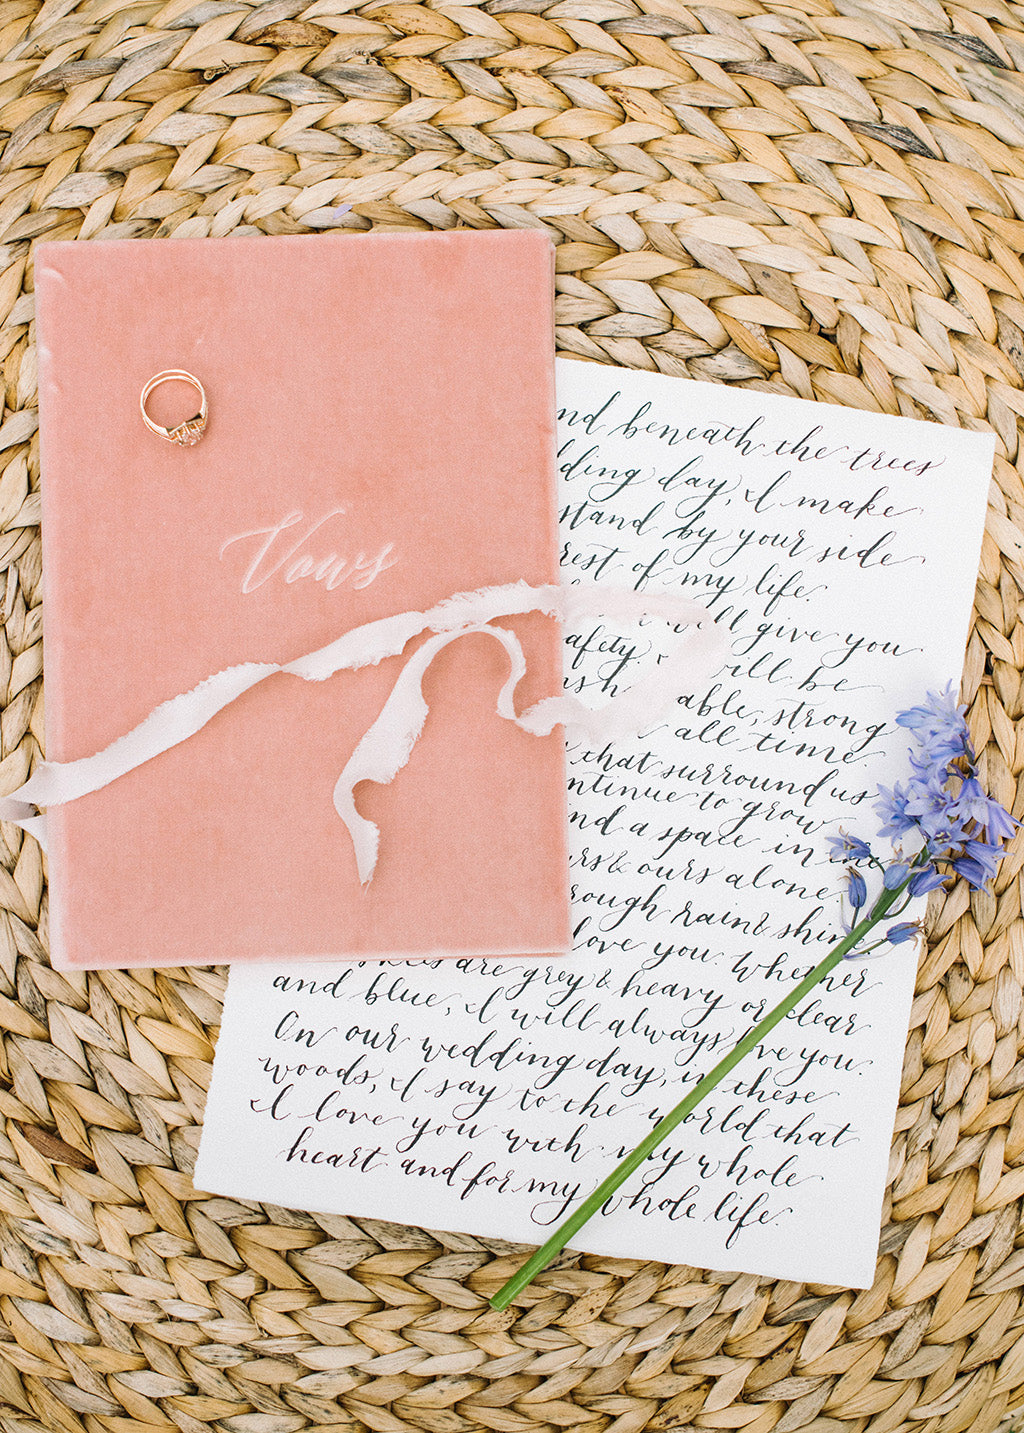 Vows
nd beneath the trees
dding day, I make
stand by your side
rest of my life.
will give you
afety. I will be
able, strong
all time.
that surround us
ntinue to grow
ind a space in the
urs & ours alone.
rough rain & shine.
love you. Whether
skies are grey & heavy or clear
and blue, I will always love you.
On our wedding day, in these
woods, I say to the world that
I love you with my whole
heart and for my whole life.